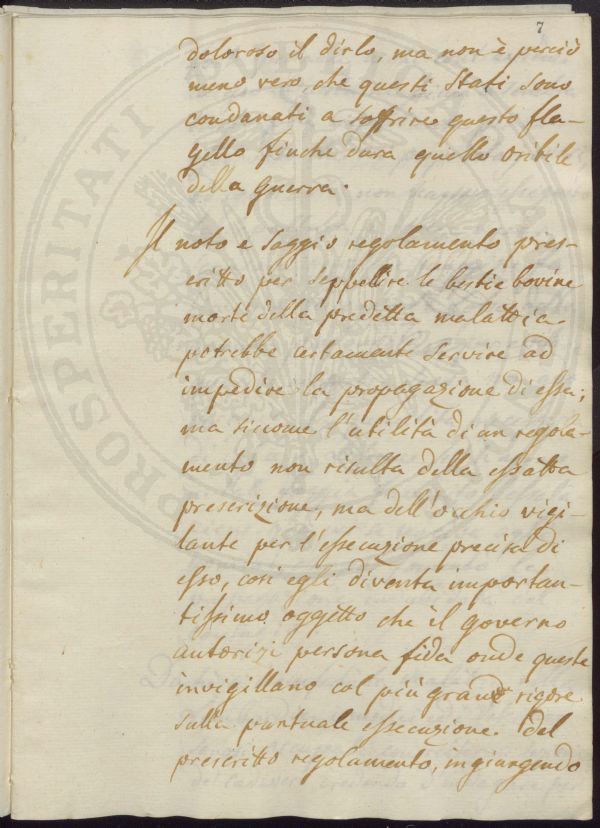 7
doloroso il dirlo, ma non è perciò
meno vero, che questi Stati sono
condanati a soffrire questo fla-
gello finche dura quello oribile
della guerra.
Il noto e saggio regolamento pres-
critto per seppellire le bestie bovine
morte della predetta malattia
potrebbe certamente servire ad
impedire la propagazione di essa;
ma siccome l'utilità di un regola-
mento non risulta della essatta
prescrizione, ma dell'occhio vigi-
lante per l'essecuzione precisa di
esso, così egli diventa importan-
tissimo oggetto che il governo
autorizi persona fida onde queste
invigillano col più grand rigore
sulla puntuale essecuzione. del
prescritto regolamento, ingiungendo
PROSPERITATI